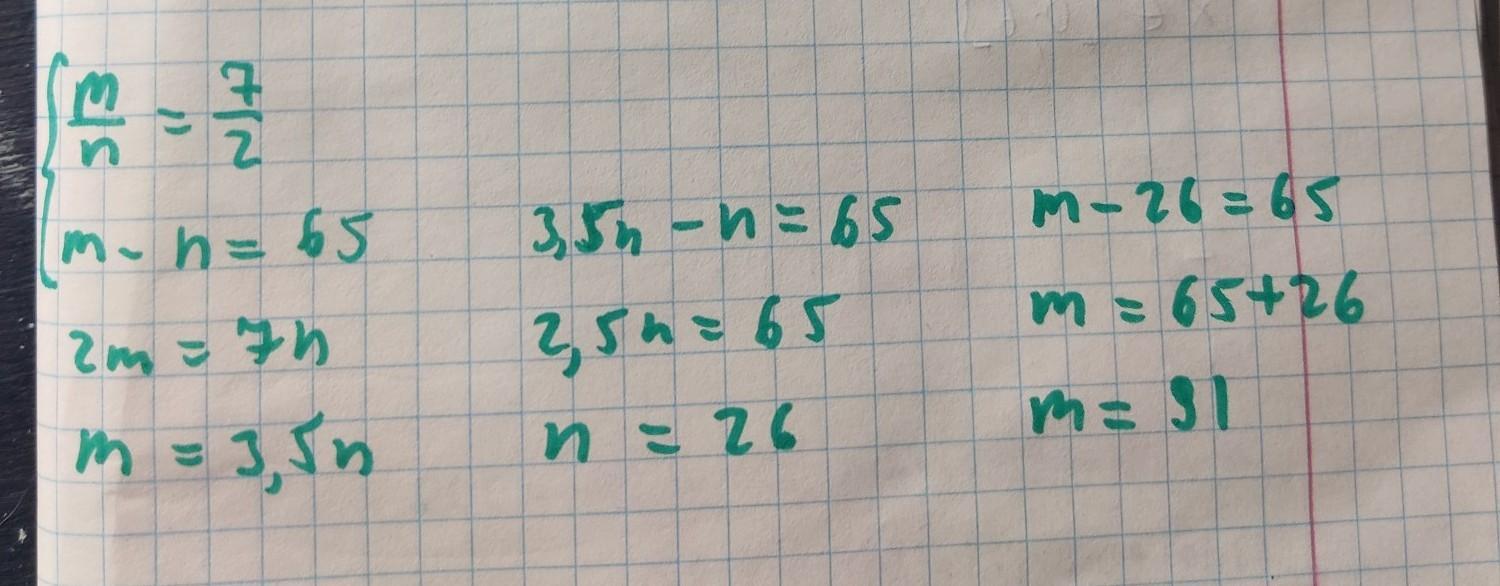 m/n = 7/2
m - n = 65
2m = 7n
m = 3,5n
3,5n - n = 65
2,5n = 65
n = 26
m - 26 = 65
m = 65+26
m = 91